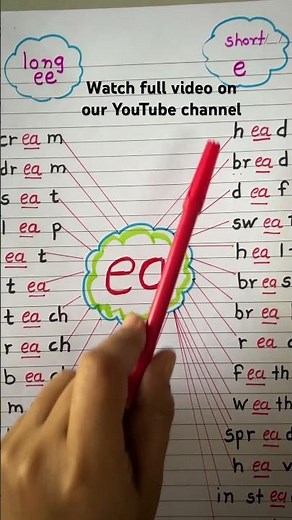 long
ee
short
e
Watch full video on
our YouTube channel
cream
dream
seat
leap
eat
tea
teach
reach
b ea
m
ea
head
bread
deaf
sweat
heal
breas
brea
rea
feath
weath
spread
heav
instea